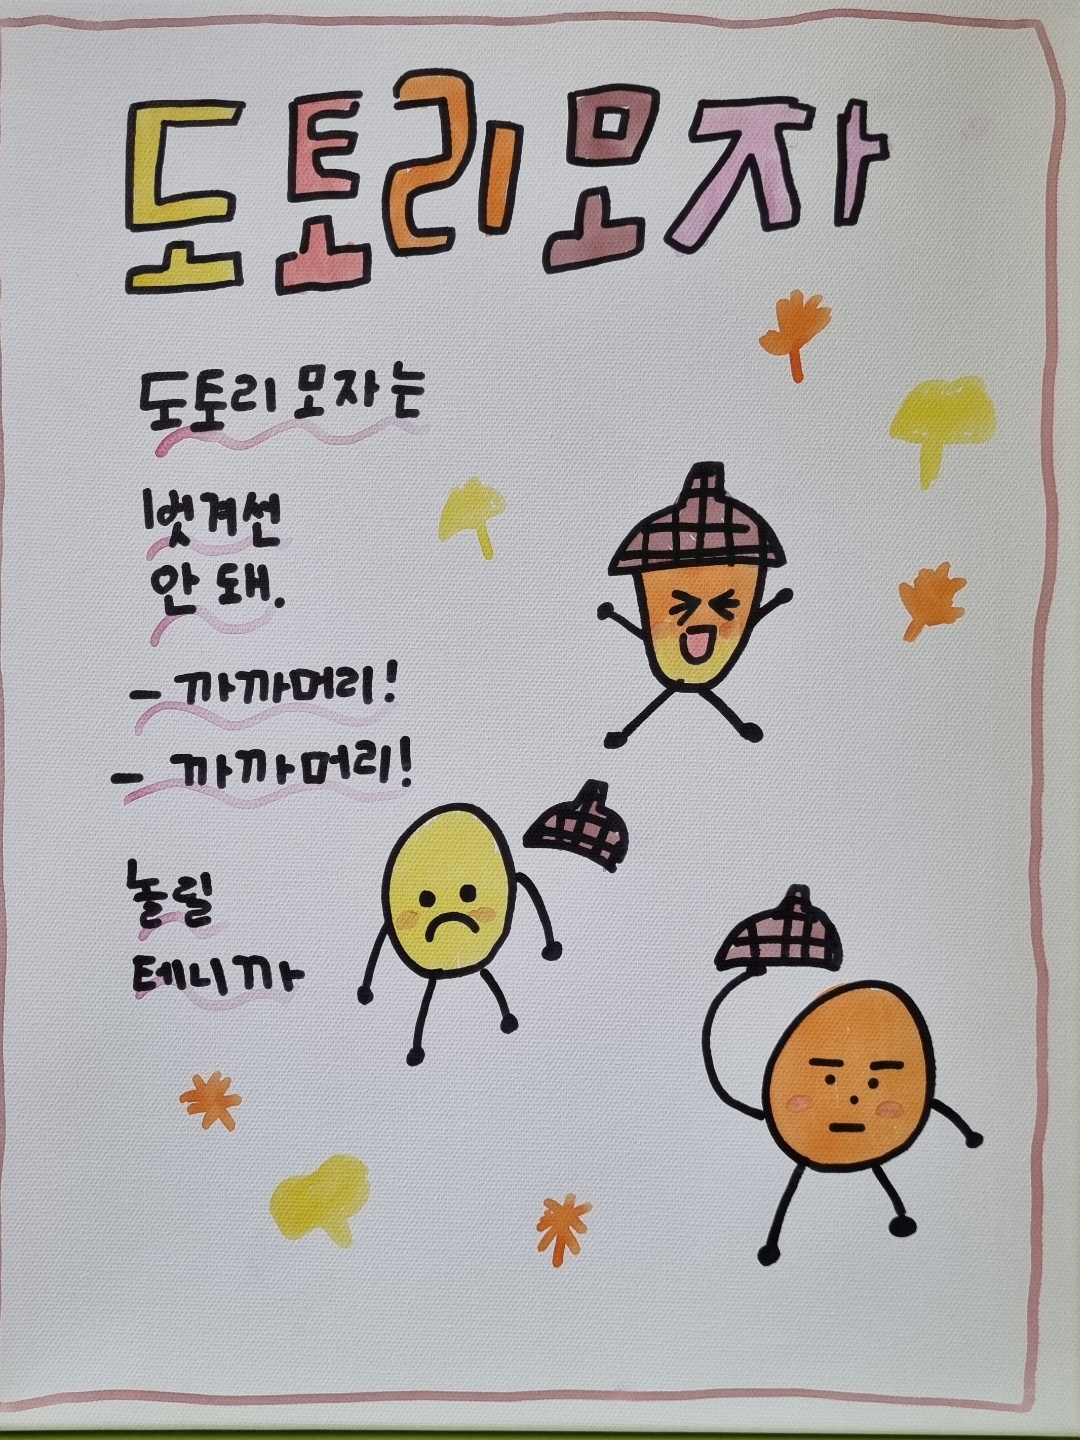 도토리모자
도토리 모자는
벗겨선
안 돼.
- 까까머리!
- 까까머리!
놀릴
테니까